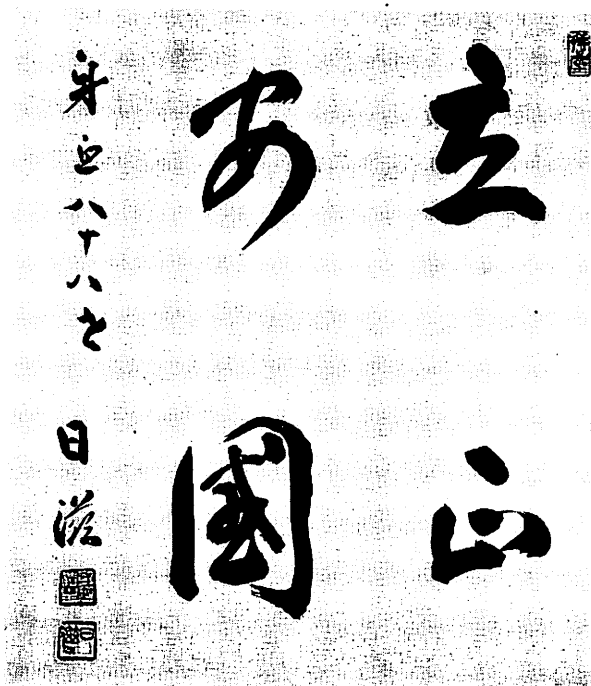 立正
安國
身延八十八世 日滋